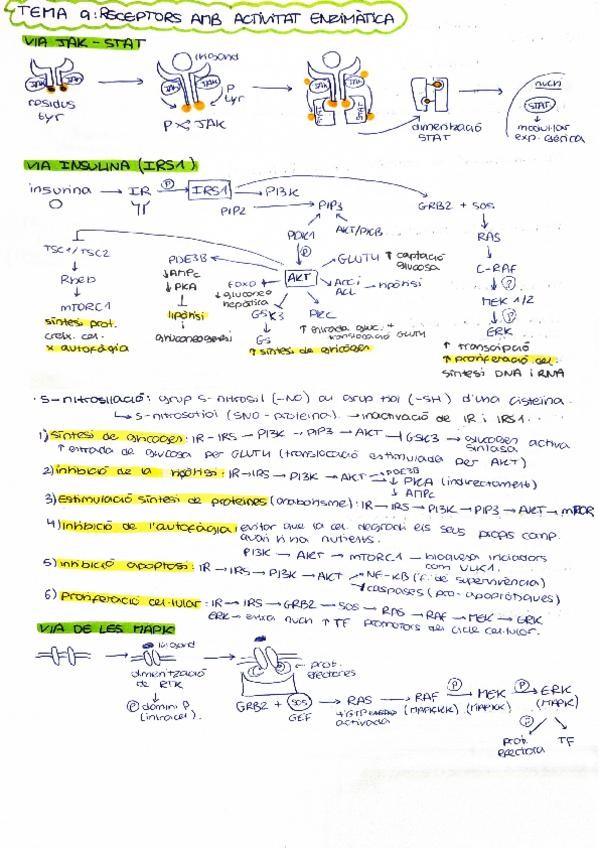 TEMA 9: RECEPTORS AMB ACTIVITAT ENZIMÀTICA
VIA JAK-STAT
lligand
JAK JAK
residus tyr
JAK JAK
P tyr
P JAK
JAK JAK
STAT STAT
dimerització STAT
nucli
STAT
modular exp. gènica
VIA INSULINA (IRS1)
insulina → IR → (P) IRS1 → PI3K
PIP2 → PIP3
GRB2 + SOS
PDK1
AKT/PKB
RAS
TSC1/TSC2
PDE3B
(P)
GLUT4 ↑ captació glucosa
C-RAF
Rheb
↓AMPc
↓PKA
FOXO
↓ gluconeo hepàtica
AKT
ACL
lipòlisi
MEK 1/2
mTORC1
lipòlisi
GSK3
PKC
(P)
síntesi prot.
creix. cel.
x autofàgia
gluconeogènesi
GS
↑ entrada gluc. + translocació GLUT4
ERK
↑ síntesi de glicogen
↑ transcripció
↑ proliferació cel.
síntesi DNA i RNA
· S-nitrosilació: grup S-nitrosil (-NO) au grup tiol (-SH) d'una cisteïna
↳ S-nitrosotiol (SNO-proteïna) → inactivació de IR i IRS1.
1) síntesi de glicogen: IR-IRS → PI3K → PIP3 → AKT ⊣ GSK3 → glucogen sintasa activa
↑ entrada de glucosa per GLUT4 (translocació estimulada per AKT)
2) inhibició de la lipòlisi: IR → IRS → PI3K → AKT → PDE3B
↓ PKA (indirectament)
↓ AMPc
3) Estimulació síntesi de proteïnes (anabolisme): IR → IRS → PI3K → PIP3 → AKT → mTOR
4) Inhibició de l'autofàgia: evitar que la cel. degradi els seus propis comp. quan hi ha nutrients.
PI3K → AKT → mTORC1 → bloqueja iniciadors com ULK1.
5) Inhibició apoptosi: IR → IRS → PI3K → AKT
NF-KB (f. de supervivència)
caspases (pro-apoptòtiques)
6) Proliferació cel·lular: IR → IRS → GRB2 → SOS → RAS → RAF → MEK → ERK
ERK → entra nucli ↑ TF promotors del cicle cel·lular.
VIA DE LES MAPK
lligand
dimerització de RTK
(P) domini P (intracel).
prot. efectores
GRB2 + SOS → RAS → RAF → (P) MEK → (P) ERK
GEF
activada
(MAPKKK) (MAPKK) (MAPK)
(P)
prot. efectora
TF